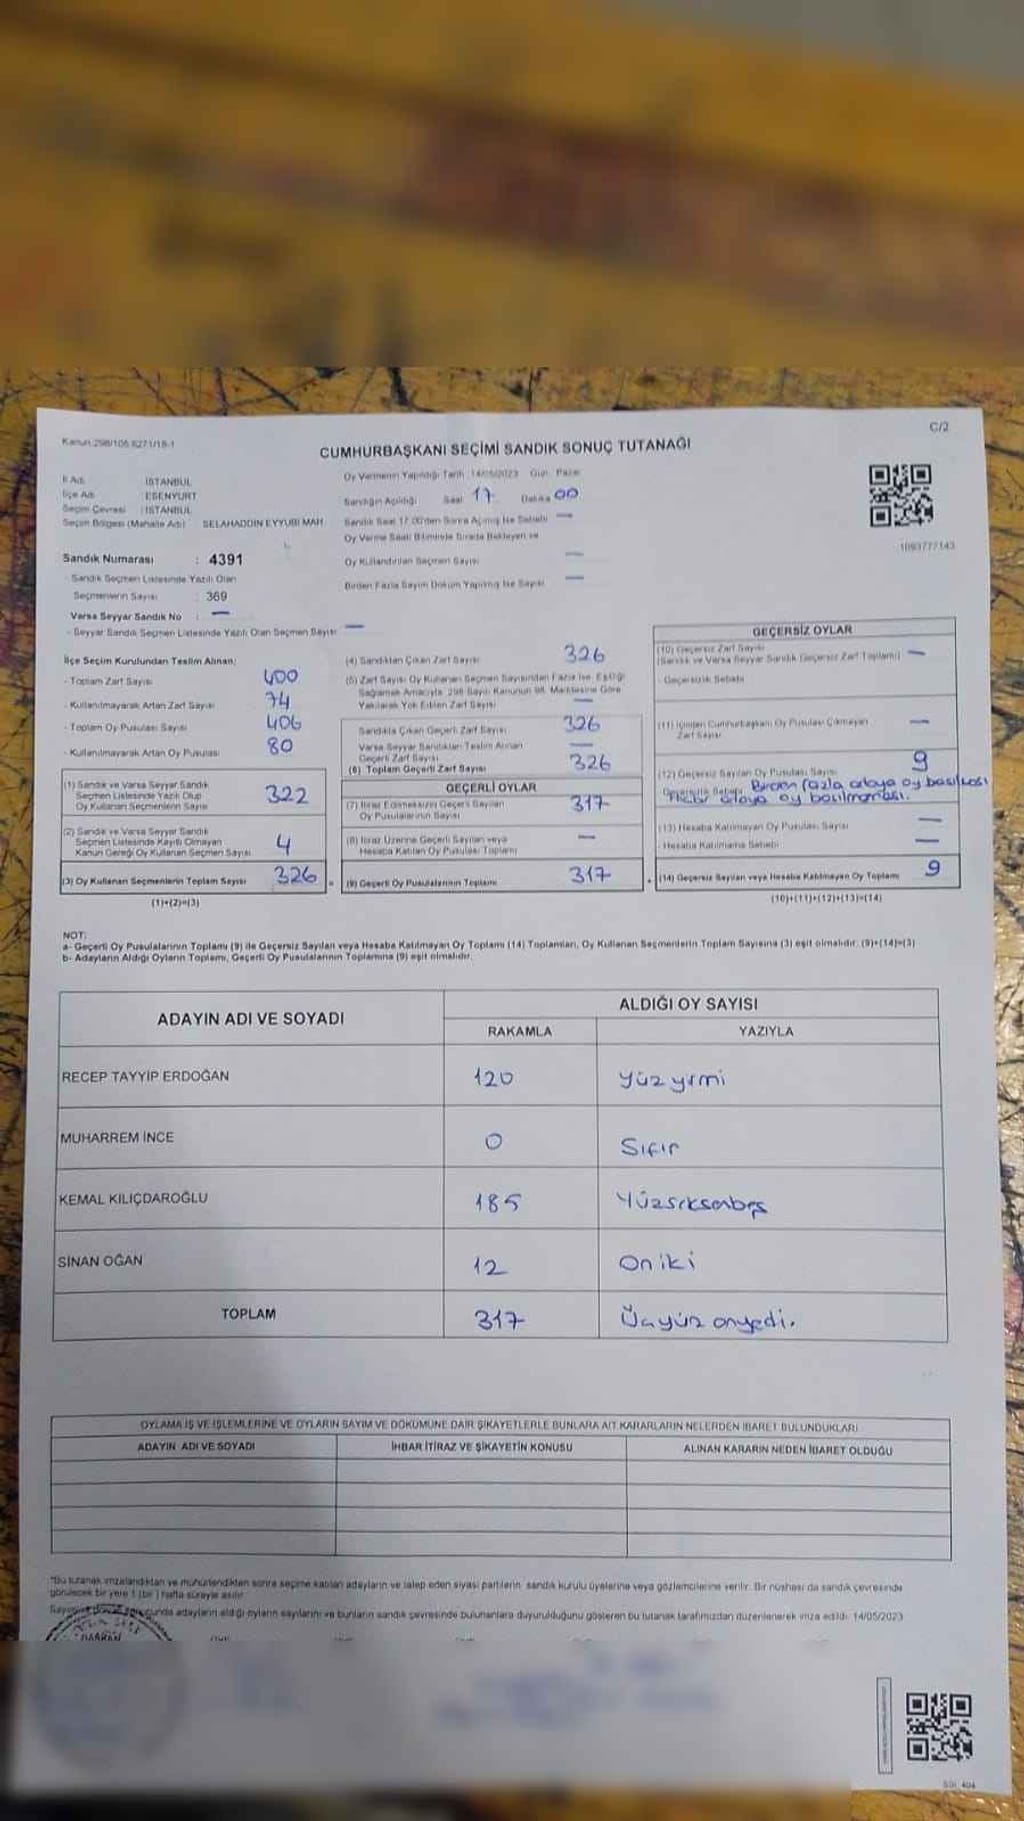 Kanun 298/105 6271/18-1
C/2
CUMHURBAŞKANI SEÇİMİ SANDIK SONUÇ TUTANAĞI
İl Adı : İSTANBUL
İlçe Adı : ESENYURT
Seçim Çevresi : İSTANBUL
Seçim Bölgesi (Mahalle Adı) SELAHADDİN EYYUBİ MAH
Oy Vermenin Yapıldığı Tarih 14/05/2023 Gün Pazar
Sandığın Açıldığı Saat 17 Dakika 00
Sandık Saat 17.00'den Sonra Açılmış İse Sebebi —
Oy Verme Saati Bitiminde Sırada Bekleyen ve
Oy Kullandırılan Seçmen Sayısı —
Birden Fazla Sayım Döküm Yapılmış İse Sayısı —
1093777143
Sandık Numarası : 4391
- Sandık Seçmen Listesinde Yazılı Olan
Seçmenlerin Sayısı : 369
Varsa Seyyar Sandık No : —
- Seyyar Sandık Seçmen Listesinde Yazılı Olan Seçmen Sayısı —
İlçe Seçim Kurulundan Teslim Alınan;
- Toplam Zarf Sayısı 400
- Kullanılmayarak Artan Zarf Sayısı 74
- Toplam Oy Pusulası Sayısı 406
- Kullanılmayarak Artan Oy Pusulası 80
(1) Sandık ve Varsa Seyyar Sandık
Seçmen Listesinde Yazılı Olup
Oy Kullanan Seçmenlerin Sayısı 322
(2) Sandık ve Varsa Seyyar Sandık
Seçmen Listesinde Kayıtlı Olmayan
Kanun Gereği Oy Kullanan Seçmen Sayısı 4
(3) Oy Kullanan Seçmenlerin Toplam Sayısı 326
(1)+(2)=(3)
(4) Sandıktan Çıkan Zarf Sayısı 326
(5) Zarf Sayısı Oy Kullanan Seçmen Sayısından Fazla İse, Eşitliği
Sağlamak Amacıyla, 298 Sayılı Kanunun 98. Maddesine Göre
Yakılarak Yok Edilen Zarf Sayısı —
Sandıkta Çıkan Geçerli Zarf Sayısı 326
Varsa Seyyar Sandıktan Teslim Alınan
Geçerli Zarf Sayısı —
(6) Toplam Geçerli Zarf Sayısı 326
GEÇERLİ OYLAR
(7) İtiraz Edilmeksizin Geçerli Sayılan
Oy Pusulalarının Sayısı 317
(8) İtiraz Üzerine Geçerli Sayılan veya
Hesaba Katılan Oy Pusulası Toplamı —
(9) Geçerli Oy Pusulalarının Toplamı 317
GEÇERSİZ OYLAR
(10) Geçersiz Zarf Sayısı
(Sandık ve Varsa Seyyar Sandık Geçersiz Zarf Toplamı) —
- Geçersizlik Sebebi
(11) İçinden Cumhurbaşkanı Oy Pusulası Çıkmayan
Zarf Sayısı —
(12) Geçersiz Sayılan Oy Pusulası Sayısı 9
Geçersizlik Sebebi Birden fazla adaya oy basılması
Hiçbir adaya oy basılmaması.
(13) Hesaba Katılmayan Oy Pusulası Sayısı —
- Hesaba Katılmama Sebebi —
(14) Geçersiz Sayılan veya Hesaba Katılmayan Oy Toplamı 9
(10)+(11)+(12)+(13)=(14)
NOT:
a- Geçerli Oy Pusulalarının Toplamı (9) ile Geçersiz Sayılan veya Hesaba Katılmayan Oy Toplamı (14) Toplamları, Oy Kullanan Seçmenlerin Toplam Sayısına (3) eşit olmalıdır. (9)+(14)=(3)
b- Adayların Aldığı Oyların Toplamı, Geçerli Oy Pusulalarının Toplamına (9) eşit olmalıdır.
ADAYIN ADI VE SOYADI
ALDIĞI OY SAYISI
RAKAMLA YAZIYLA
RECEP TAYYİP ERDOĞAN 120 Yüzyirmi
MUHARREM İNCE 0 Sıfır
KEMAL KILIÇDAROĞLU 185 Yüzseksenbeş
SİNAN OĞAN 12 Oniki
TOPLAM 317 Üçyüz onyedi.
OYLAMA İŞ VE İŞLEMLERİNE VE OYLARIN SAYIM VE DÖKÜMÜNE DAİR ŞİKAYETLERLE BUNLARA AİT KARARLARIN NELERDEN İBARET BULUNDUKLARI
ADAYIN ADI VE SOYADI İHBAR İTİRAZ VE ŞİKAYETİN KONUSU ALINAN KARARIN NEDEN İBARET OLDUĞU
"Bu tutanak imzalandıktan ve mühürlendikten sonra seçime katılan adayların ve talep eden siyasi partilerin sandık kurulu üyelerine veya gözlemcilerine verilir. Bir nüshası da sandık çevresinde
görülecek bir yere 1 (bir) hafta süreyle asılır.
adayların aldığı oyların sayılarını ve bunların sandık çevresinde bulunanlara duyurulduğunu gösteren bu tutanak tarafımızdan düzenlenerek imza edildi. 14/05/2023
BAŞKAN
404